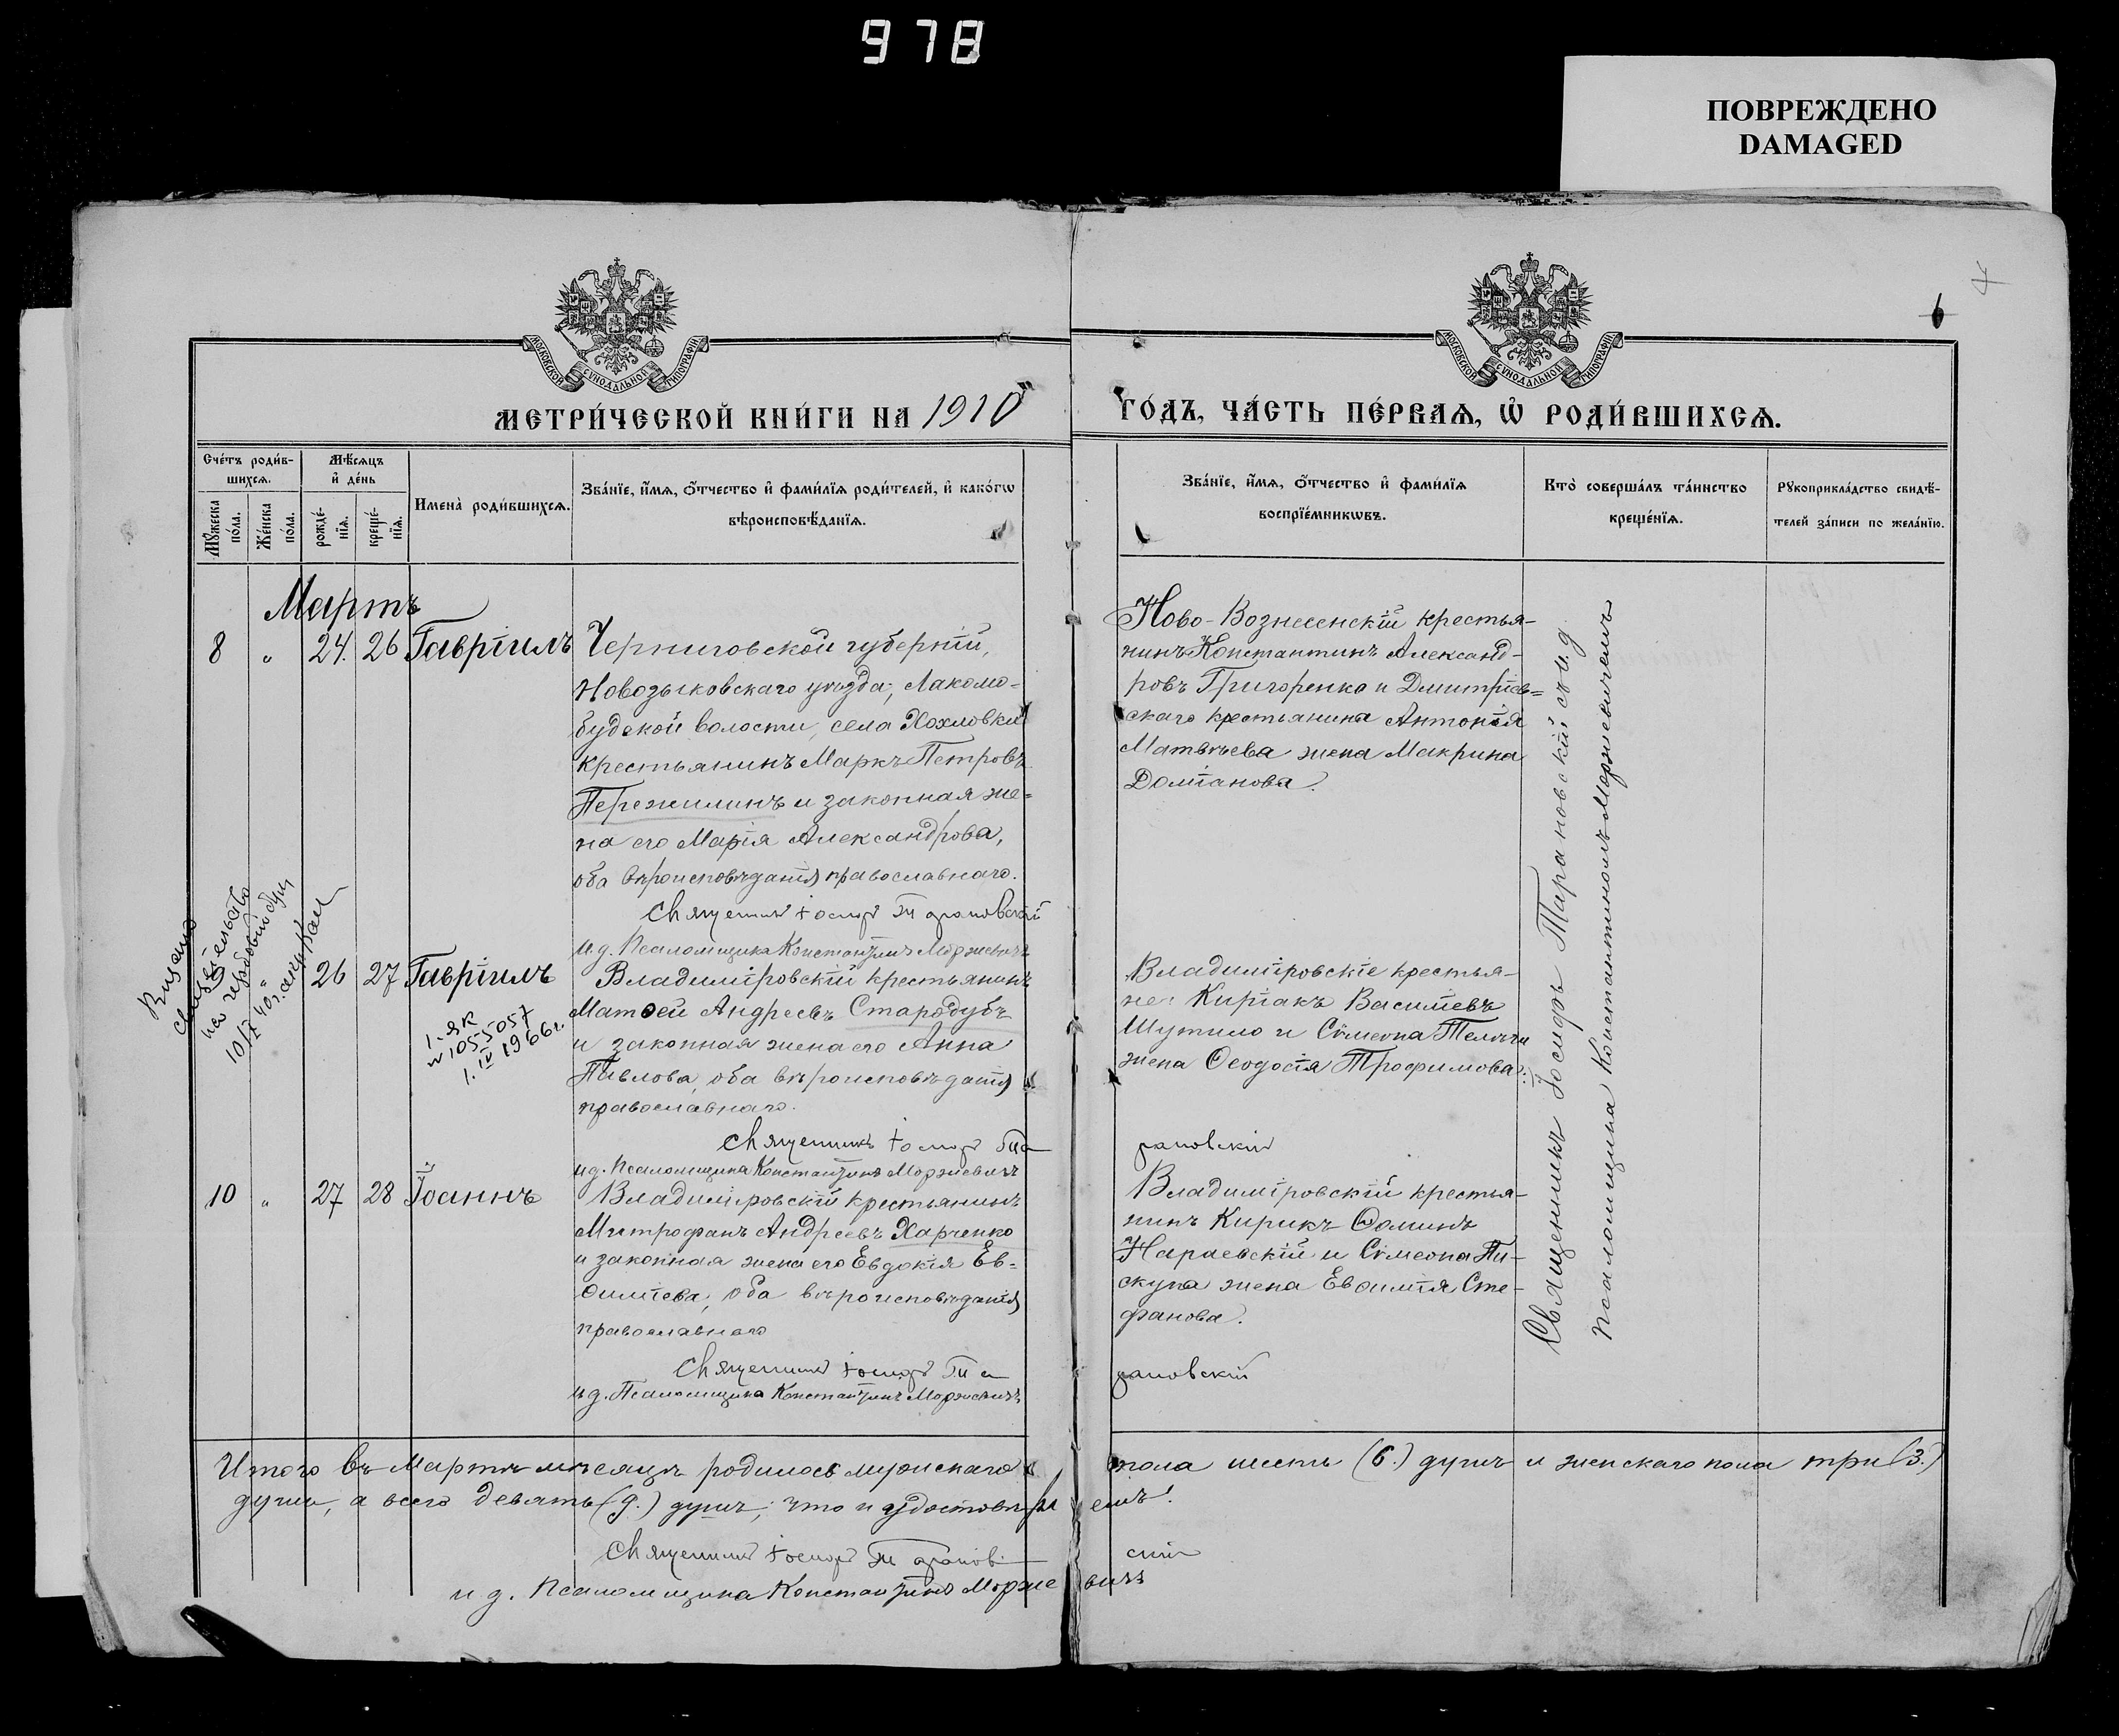 978
ПОВРЕЖДЕНО
DAMAGED
4
6
МОСКОВСКОЙ СѴНОДАЛЬНОЙ ТИПОГРАФІИ
МОСКОВСКОЙ СѴНОДАЛЬНОЙ ТИПОГРАФІИ
МЕТРИ́ЧЕСКОЙ КНИ́ГИ НА 1910
ГО́ДЪ, ЧА́СТЬ ПЕ́РВАѦ, Ѽ РОДИ́ВШИХСѦ.
Сче́тъ роди́в-
шихсѧ.
Мꙋ́жеска по́ла.
Же́нска по́ла.
Мѣ́сѧцъ
и҆ де́нь
рожде́-
нїѧ.
креще́-
нїѧ.
Имена̀ роди́вшихсѧ.
Зва́нїе, и҆́мѧ, ѻ҆́тчество и҆ фами́лїѧ роди́телей, и҆ како́гѡ
вѣроисповѣ́данїѧ.
Зва́нїе, и҆́мѧ, ѻ҆́тчество и҆ фами́лїѧ
воспрїе́мникѡвъ.
Кто̀ соверша́лъ та́инство
креще́нїѧ.
Рꙋкоприкла́дство свидѣ́-
телей за́писи по жела́нїю.
Мартъ
8 " 24. 26 Гавріилъ
Черниговской губерніи,
Новозыбковскаго уѣзда, Лакомо-
будской волости, села Хохловки
крестьянинъ Маркъ Петровъ
Пережилинъ и законная же-
на его Марія Александрова,
оба вѣроисповѣданія православнаго.
Священникъ Іосифъ Тарановскій
и.д. Псаломщика Константинъ Моржевичъ
Ново-Вознесенскій крестья-
нинъ Константинъ Александ-
ровъ Григоренко и Дмитріев-
скаго крестьянина Антонія
Матвѣева жена Макрина
Доміанова.
Выдано
свидетельство
на гербовой бум
10/I 40 г.
" 26 27 Гавріилъ
1.ЯК
№ 1055057
1.IV 1966 г.
Владимировскій крестьянинъ
Матѳей Андреевъ Стародубъ
и законная жена его Анна
Павлова, оба вѣроисповѣданія
православнаго.
Священникъ Іосифъ Тарановскій
и.д. Псаломщика Константинъ Моржевичъ
Владиміровскіе крестья-
не: Киріакъ Василіевъ
Шутило и Сѵмеона Телѣги
жена Ѳеодосія Трофимова.
10 " 27 28 Іоаннъ
Владиміровскій крестьянинъ
Митрофанъ Андреевъ Харченко
и законная жена его Евдокія Ев-
ѳиміева, оба вѣроисповѣданія
православнаго
Священникъ Іосифъ Тарановскій
и.д. Псаломщика Константинъ Моржевичъ
Владиміровскій крестья-
нинъ Кирикъ Ѳоминъ
Нараевскій и Сѵмеона Пи-
скуна жена Евѳимія Сте-
фанова.
Священникъ Іосифъ Тарановскій съ и.д
псаломщика Константиномъ Моржевичемъ
Итого въ Мартѣ мѣсяцѣ родилось мужскаго пола шесть (6.) душъ и женскаго пола три (3.)
души, а всего девять (9.) душъ; что и удостовѣряемъ.
Священникъ Іосифъ Тарановскій
и д. Псаломщика Константинъ Моржевичъ